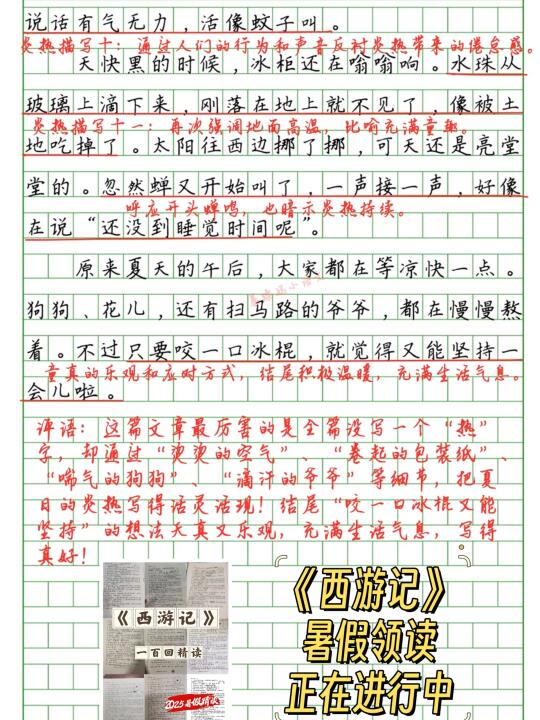 说话有气无力，活像蚊子叫。
炎热描写十：通过人们的行为和声音反衬炎热带来的倦怠感。
天快黑的时候，冰柜还在嗡嗡响。水珠从
玻璃上滴下来，刚落在地上就不见了，像被土
炎热描写十一：再次强调地面高温，比喻充满童趣。
地吃掉了。太阳往西边挪了挪，可天还是亮堂
堂的。忽然蝉又开始叫了，一声接一声，好像
呼应开头蝉鸣，也暗示炎热持续。
在说“还没到睡觉时间呢”。
原来夏天的午后，大家都在等凉快一点。
狗狗、花儿，还有扫马路的爷爷，都在慢慢熬
着。不过只要咬一口冰棍，就觉得又能坚持一
童真的乐观和应对方式，结尾积极温暖，充满生活气息。
会儿啦。
评语：这篇文章最厉害的是全篇没写一个“热”
字，却通过“烫烫的空气”、“卷起的包装纸”、
“喘气的狗狗”、“滴汗的爷爷”等细节，把夏
日的炎热写得活灵活现！结尾“咬一口冰棍又能
坚持”的想法天真又乐观，充满生活气息，写得
真好！
《西游记》
一百回精读
2025暑假精读
《西游记》
暑假领读
正在进行中